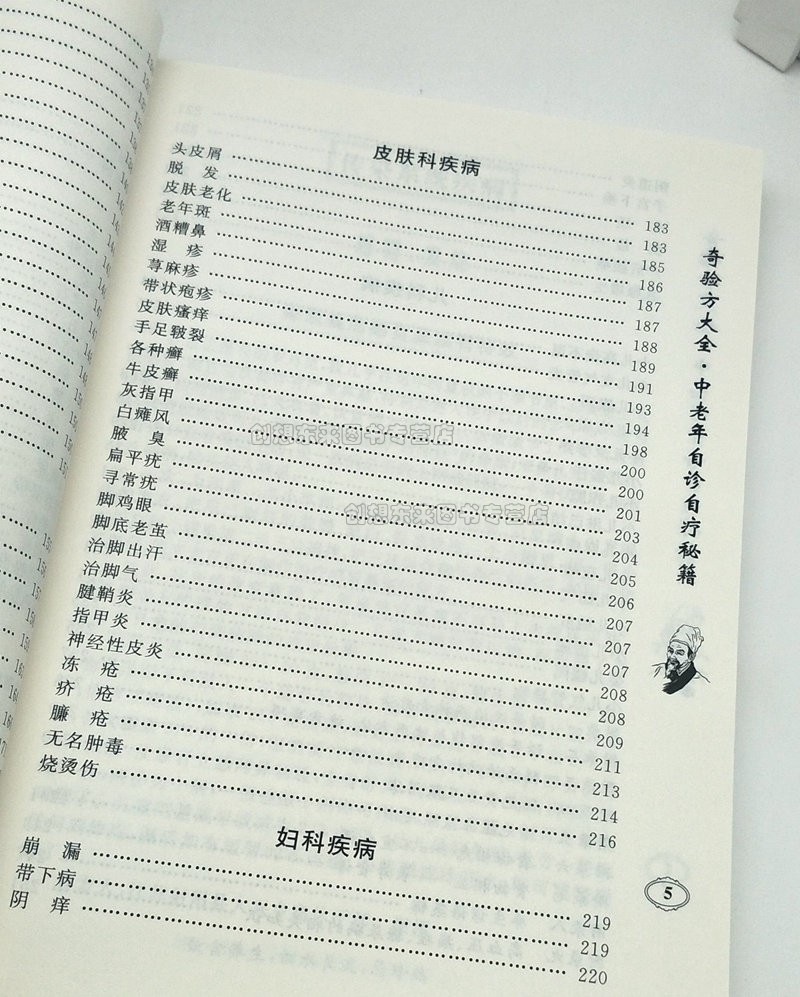 皮肤科疾病
头皮屑 …… 183
脱　发 …… 183
皮肤老化 …… 185
老年斑 …… 186
酒糟鼻 …… 187
湿　疹 …… 187
荨麻疹 …… 188
带状疱疹 …… 189
皮肤瘙痒 …… 191
手足皲裂 …… 193
各种癣 …… 194
牛皮癣 …… 198
灰指甲 …… 200
白癜风 …… 200
腋　臭 …… 201
扁平疣 …… 203
寻常疣 …… 204
脚鸡眼 …… 205
脚底老茧 …… 206
治脚出汗 …… 207
治脚气 …… 207
腱鞘炎 …… 207
指甲炎 …… 208
神经性皮炎 …… 208
冻　疮 …… 209
疥　疮 …… 211
臁　疮 …… 213
无名肿毒 …… 214
烧烫伤 …… 216
妇科疾病
崩　漏 …… 219
带下病 …… 219
阴　痒 …… 220
奇验方大全·中老年自诊自疗秘籍
5
创想东来图书专营店
创想东来图书专营店